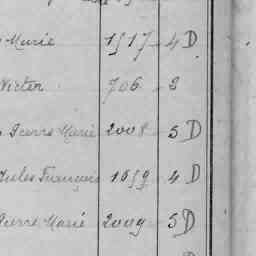 Marie 1517 4 D
Victor 706 2
Pierre Marie 2008 5 D
Jules François 1059 4 D
Pierre Marie 2009 5 D